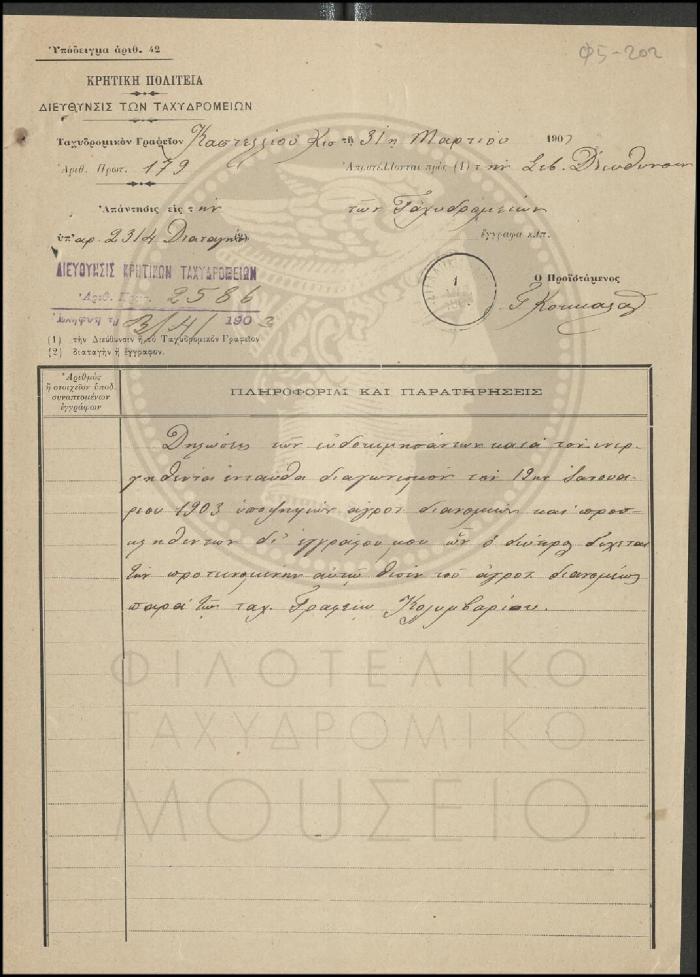 Ὑπόδειγμα ἀριθ. 42
Φ5-202
ΚΡΗΤΙΚΗ ΠΟΛΙΤΕΙΑ
ΔΙΕΥΘΥΝΣΙΣ ΤΩΝ ΤΑΧΥΔΡΟΜΕΙΩΝ
Ταχυδρομικὸν Γραφεῖον Καστελλίου Κισ τῇ 31η Μαρτίου 190
Ἀριθ. Πρωτ. 179
Ἀποστέλλονται πρὸς (1) τὴν Σεβ. Διεύθυνσιν
Ἀπάντησις εἰς τὴν
τῶν Ταχυδρομείων
ὑπ' ἀρ. 2314 Διαταγὴν (2)
ἔγγραφα κ.λ.π.
ΔΙΕΥΘΥΝΣΙΣ ΚΡΗΤΙΚΩΝ ΤΑΧΥΔΡΟΜΕΙΩΝ
Ἀριθ. Πρωτ. 2586
3/4/ 1903
Ὁ Προϊστάμενος
(1) τὴν Διεύθυνσιν ἢ τὸ Ταχυδρομικὸν Γραφεῖον
(2) διαταγὴν ἢ ἔγγραφον.
Ἀριθμὸς
ἢ στοιχεῖον ὑποδ.
συναπτομένων
ἐγγράφων
ΠΛΗΡΟΦΟΡΙΑΙ ΚΑΙ ΠΑΡΑΤΗΡΗΣΕΙΣ
Δηλώσεις τῶν εὐδοκιμησάντων κατὰ τὸν ἐνερ
γηθέντα ἐνταῦθα διαγωνισμὸν τὴν 12ην Ἰανουα
ρίου 1903 ὑποψηφίων ἀγροτ. διανομέων καὶ προσ
κληθέντων δι' ἐγγράφου μου ὧν ὁ δεύτερος δέχεται
τὴν προτεινομένην αὐτῷ θέσιν τοῦ ἀγροτ. διανομέως
παρὰ τῷ ταχ. Γραφείῳ Κολυμβαρίου.
ΦΙΛΟΤΕΛΙΚΟ
ΤΑΧΥΔΡΟΜΙΚΟ
ΜΟΥΣΕΙΟ